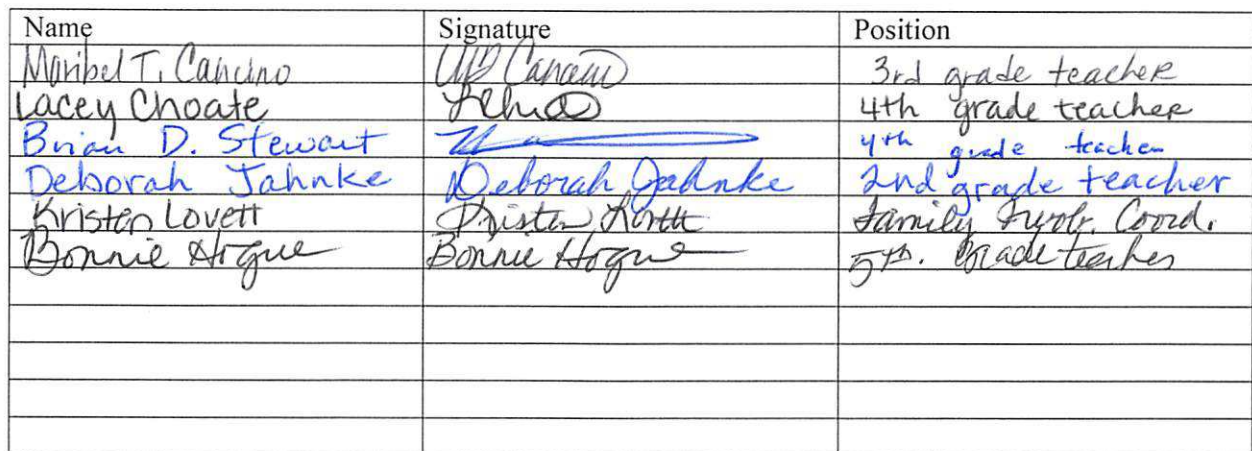 Name Signature Position
Maribel T. Cancino 3rd grade teacher
Lacey Choate 4th grade teacher
Brian D. Stewart 4th grade teacher
Deborah Jahnke Deborah Jahnke 2nd grade teacher
Kristen Lovett Kristen Lovett Family Involv. Coord.
Bonnie Hogue Bonnie Hogue 5th. Grade teacher